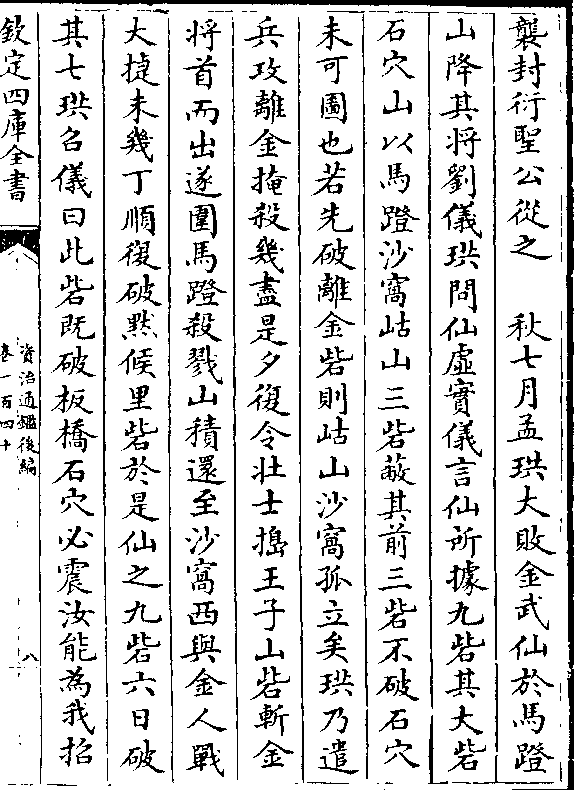 襲封衍聖公從之　秋七月孟珙大敗金武仙於馬蹬
山降其將劉儀珙問仙虛實儀言仙所據九砦其大砦
石穴山以馬蹬沙窩岵山三砦蔽其前三砦不破石穴
未可圖也若先破離金砦則岵山沙窩孤立矣珙乃遣
兵攻離金掩殺幾盡是夕復令壯士搗王子山砦斬金
將首而出遂圍馬蹬殺戮山積還至沙窩西與金人戰
大捷未幾丁順復破黙候里砦於是仙之九砦六日破
其七珙召儀曰此砦既破板橋石穴必震汝能為我招
欽定四庫全書
資治通鑑後編
卷一百四十
八